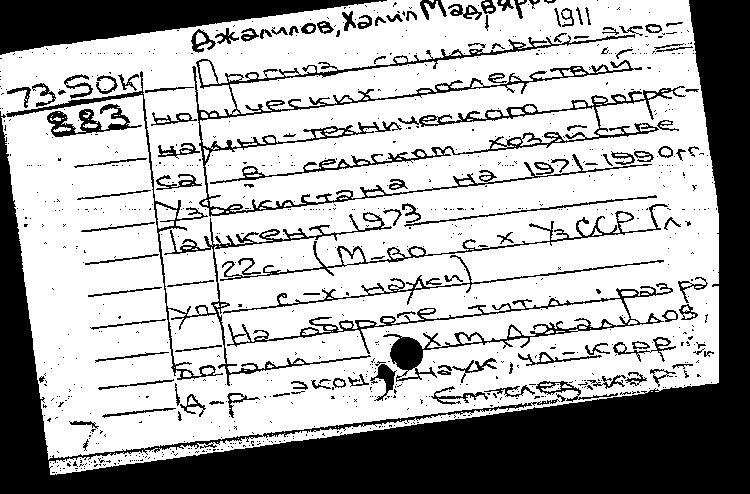 Джалилов, Халил Мадвяро
1911
73-50К
883
Прогноз социально-эко-
номических последствий
научно-технического прогрес-
са в сельском хозяйстве
Узбекистана на 1971-1990гг.
Ташкент, 1973
22с. (М-во с.х. УзССР Гл.
упр. с.-х. науки)
На обороте тит.л.: разра-
ботали Х.М. Джалилов,
д-р экон. наук, чл.-корр
След. карт.
7